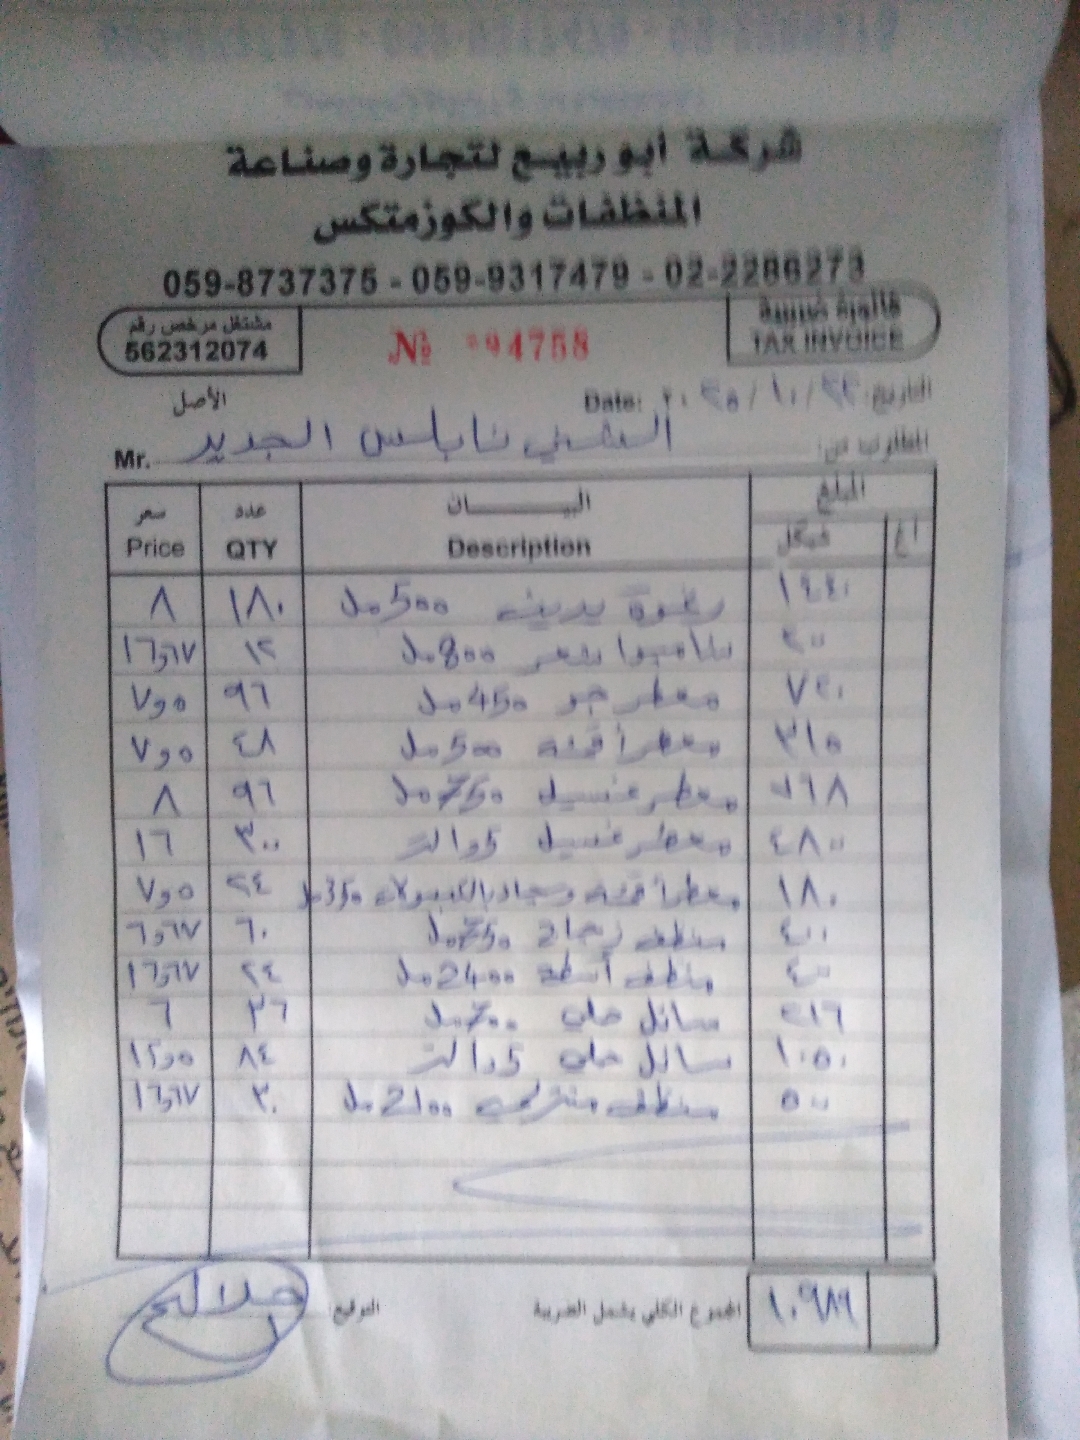 شركة ابو ربيع لتجارة وصناعة
المنظفات والكوزمتكس
059-8737375 - 059-9317479 - 02-2286273
فاتورة ضريبية
TAX INVOICE
№ 94758
مشتغل مرخص رقم
562312074
الأصل
التاريخ: ٢٠٢٥/١٠/٢٢ Date:
المطلوب من: الشني نابلس الجديد Mr.
المبلغ البيـــــــان عدد سعر
اغ شيكل Description QTY Price
١٤٤٠ رغوة يدين 500مل ١٨٠ ٨
٢٠٠ شامبو شعر 800مل ١٢ ١٦,٦٧
٧٢٠ معطر جو 450مل ٩٦ ٧,٥
٣١٥ معطر أقمشة 500مل ٤٨ ٧,٥
٧٦٨ معطر غسيل 750مل ٩٦ ٨
٤٨٠٠ معطر غسيل 5و١ لتر ٣٠٠ ١٦
١٨٠ معطر أقمشة وسجاد بالكبسولات 350مل ٢٤ ٧,٥
٤٠٠ منظف زجاج 750مل ٦٠ ٦,٦٧
٤٠٠ منظف أسطح 2400مل ٢٤ ١٦,٦٧
٢١٦ سائل جلي 700مل ٣٦ ٦
١٠٥٠ سائل جلي 5و١ لتر ٨٤ ١٢,٥
٥٠٠ منظف منزلي 2100مل ٣٠ ١٦,٦٧
١٠٩٨٩ المجموع الكلي يشمل الضريبة
التوقيع: